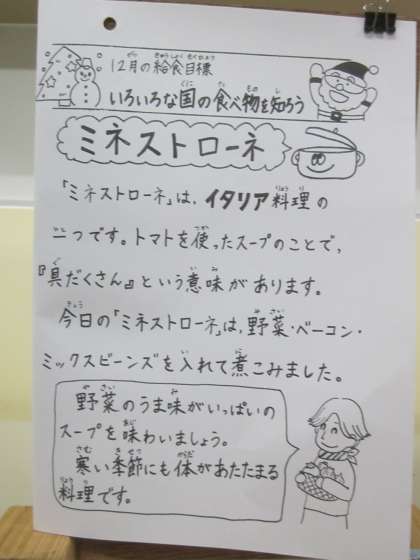 12月の給食目標
いろいろな国の食べ物を知ろう
ミネストローネ
「ミネストローネ」は、イタリア料理の
一つです。トマトを使ったスープのことで、
『具だくさん』という意味があります。
今日の「ミネストローネ」は、野菜・ベーコン・
ミックスビーンズを入れて煮こみました。
野菜のうま味がいっぱいの
スープを味わいましょう。
寒い季節にも体があたたまる
料理です。